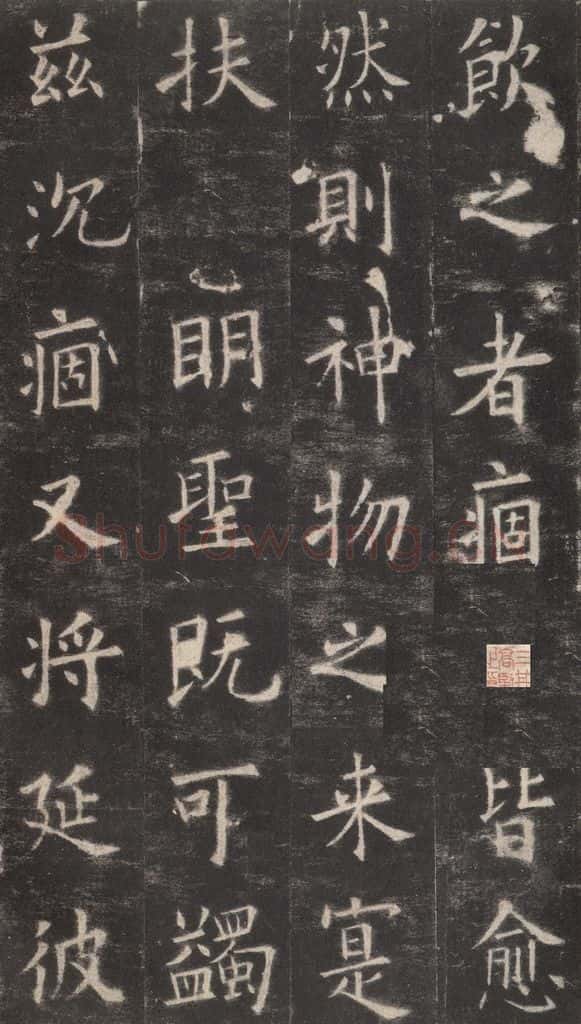 飲之者痼皆愈
然則神物之来寔
扶眀聖既可蠲
兹沉痼又将延彼
Shufawang.cn